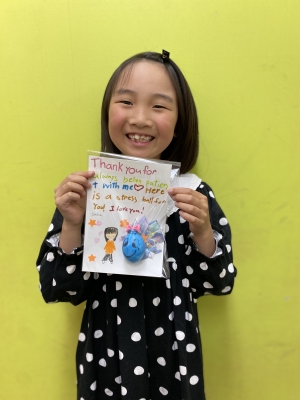 Thank you for
always being patien
t with me♡ Here
is a stress ball for
you! I love you!